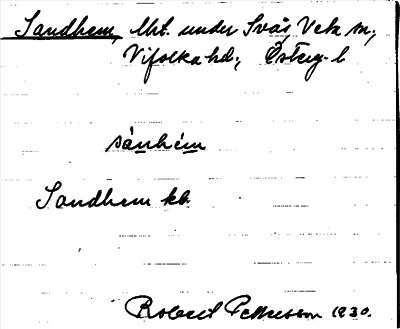 Sandhem, lht. under Svås, Veta sn,
Vifolka hd., Österg. l
sànhém
Sandhem kb.
Robert Petterson 1930.